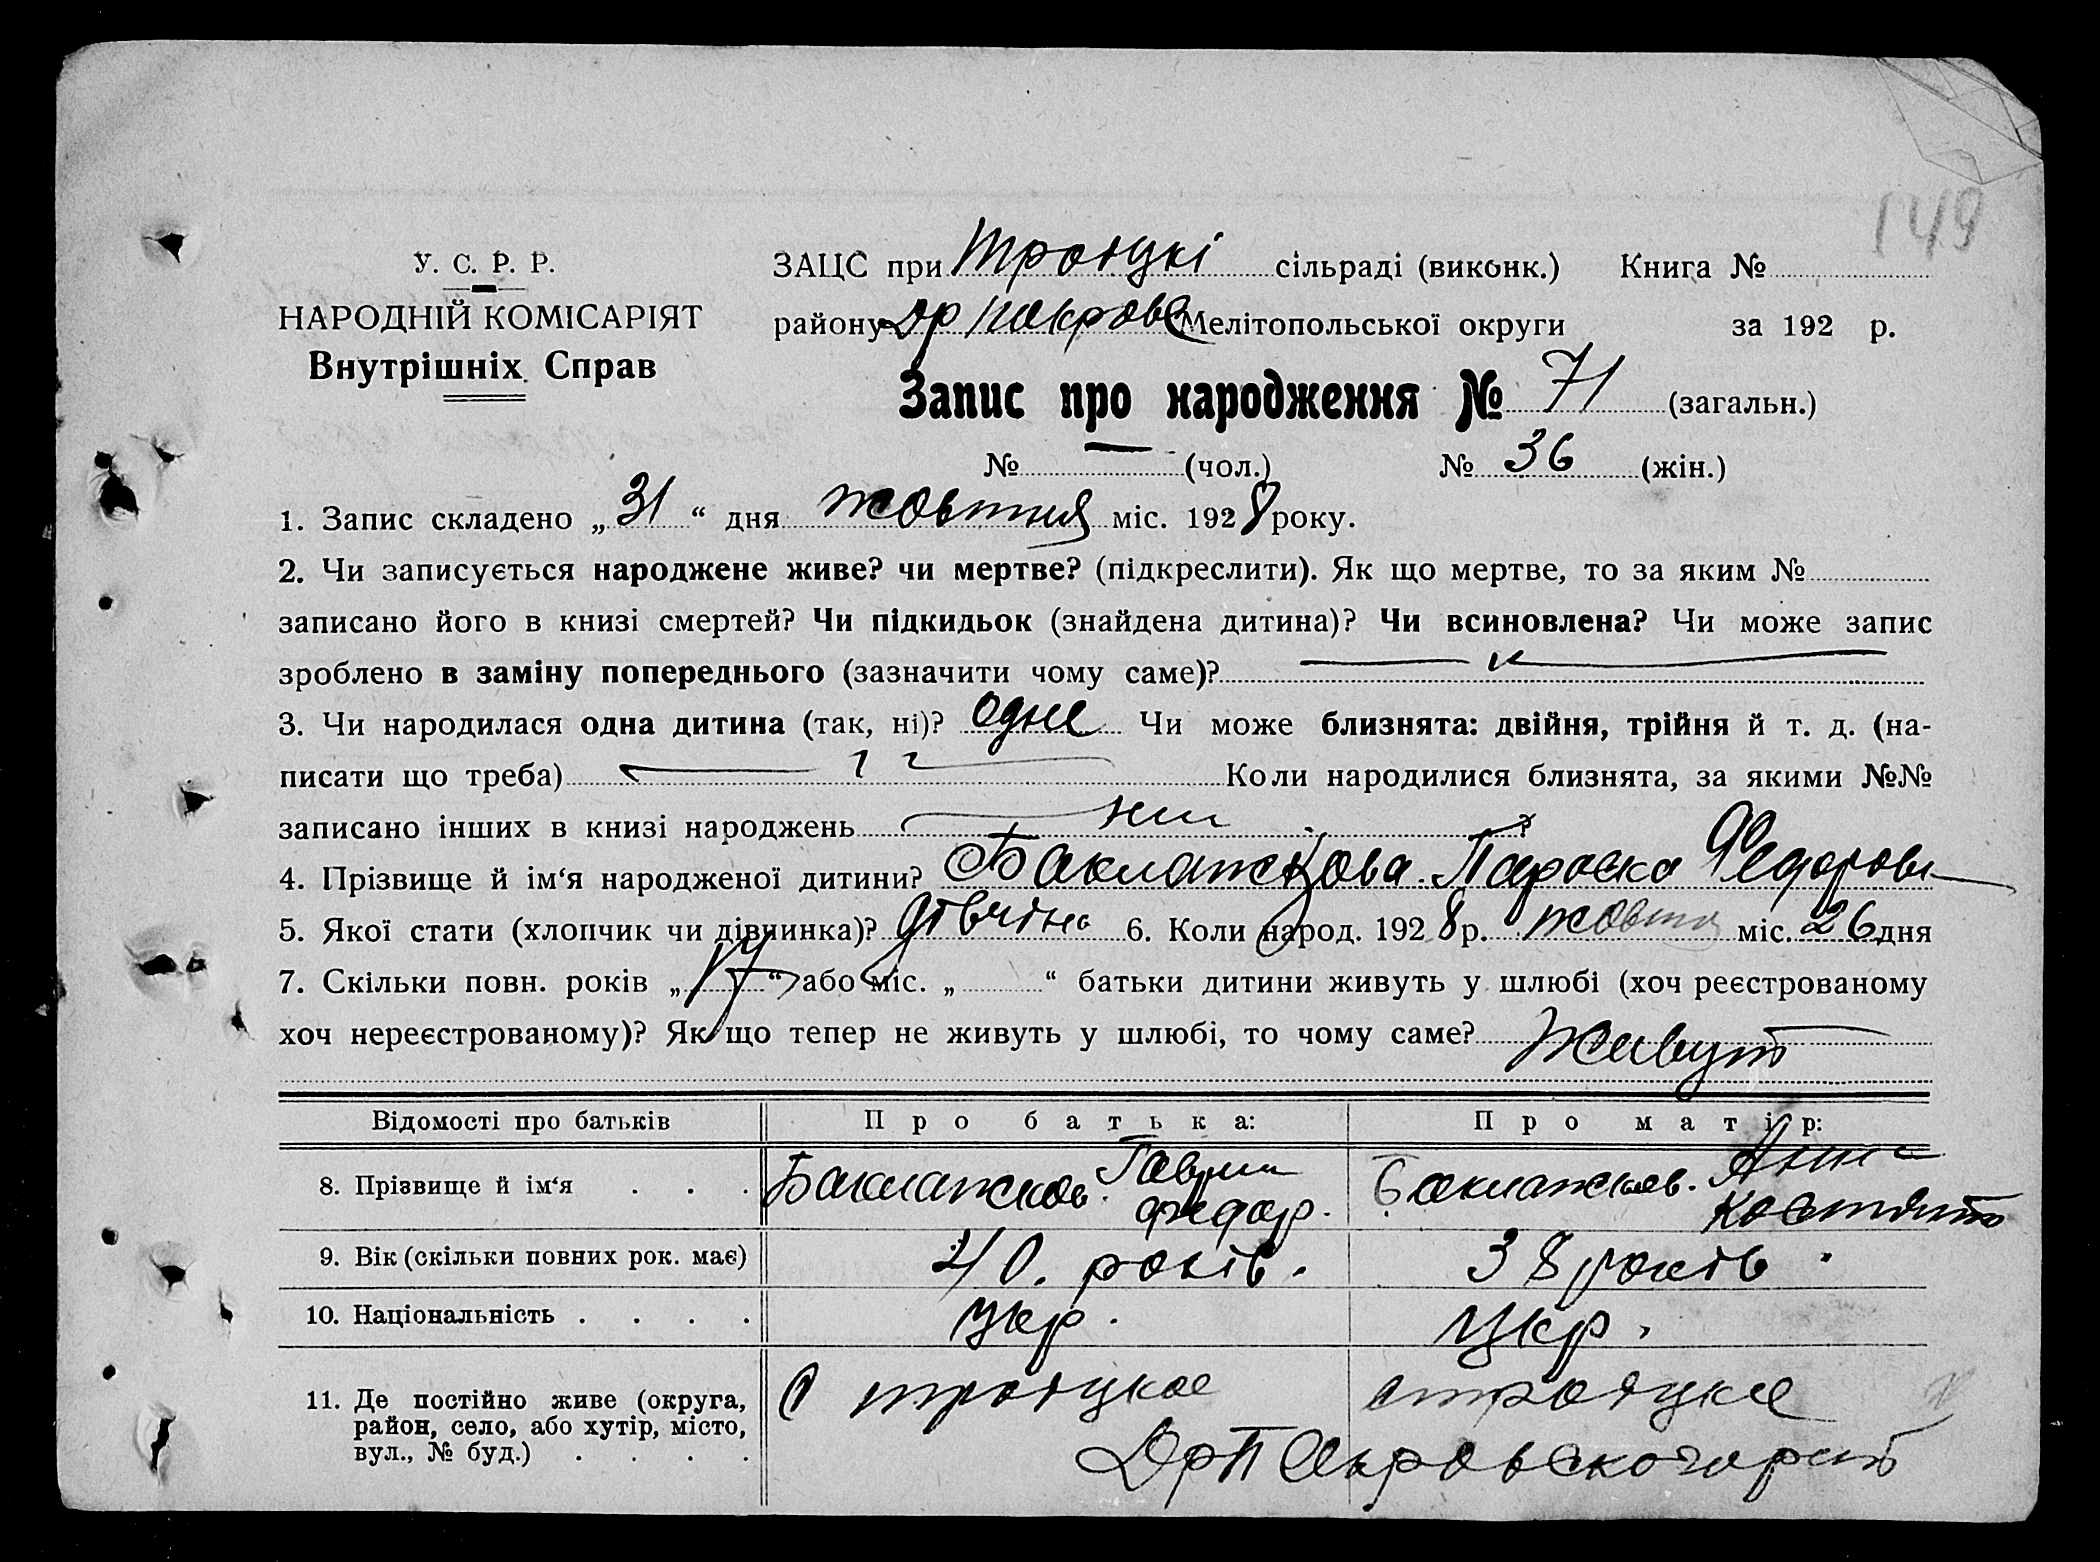 149
У. С. Р. Р.
НАРОДНІЙ КОМІСАРІЯТ
Внутрішніх Справ
ЗАЦС при Троицкі сільраді (виконк.) Книга №
району Др Покровс Мелітопольської округи за 192 р.
Запис про народження № 71 (загальн.)
№ — (чол.) № 36 (жін.)
1. Запис складено „31“ дня жовтня міс. 1928 року.
2. Чи записується народжене живе? чи мертве? (підкреслити). Як що мертве, то за яким №
записано його в книзі смертей? Чи підкидьок (знайдена дитина)? Чи всиновлена? Чи може запис
зроблено в заміну попереднього (зазначити чому саме)?
3. Чи народилася одна дитина (так, ні)? одне Чи може близнята: двійня, трійня й т. д. (на-
писати що треба) Коли народилися близнята, за якими №№
записано інших в книзі народжень ?
4. Прізвище й ім‘я народженої дитини? Баклажкова Параска Федоровн
5. Якої стати (хлопчик чи дівчинка)? дівчіна 6. Коли народ. 1928 р. жовтн міс. 26 дня
7. Скільки повн. років „ “ або міс. „ “ батьки дитини живуть у шлюбі (хоч реєстрованому
хоч нереєстрованому)? Як що тепер не живуть у шлюбі, то чому саме? Живут
Відомості про батьків Про батька: Про матір:
8. Прізвище й ім‘я . . . Баклажков Федор. Баклажков. Анна
9. Вік (скільки повних рок. має) 40. років. 38 років.
10. Національність . . . . Укр. Укр.
11. Де постійно живе (округа, с троицкое с троицке
район, село, або хутір, місто,
вул., № буд.) . . . . Др Покровского